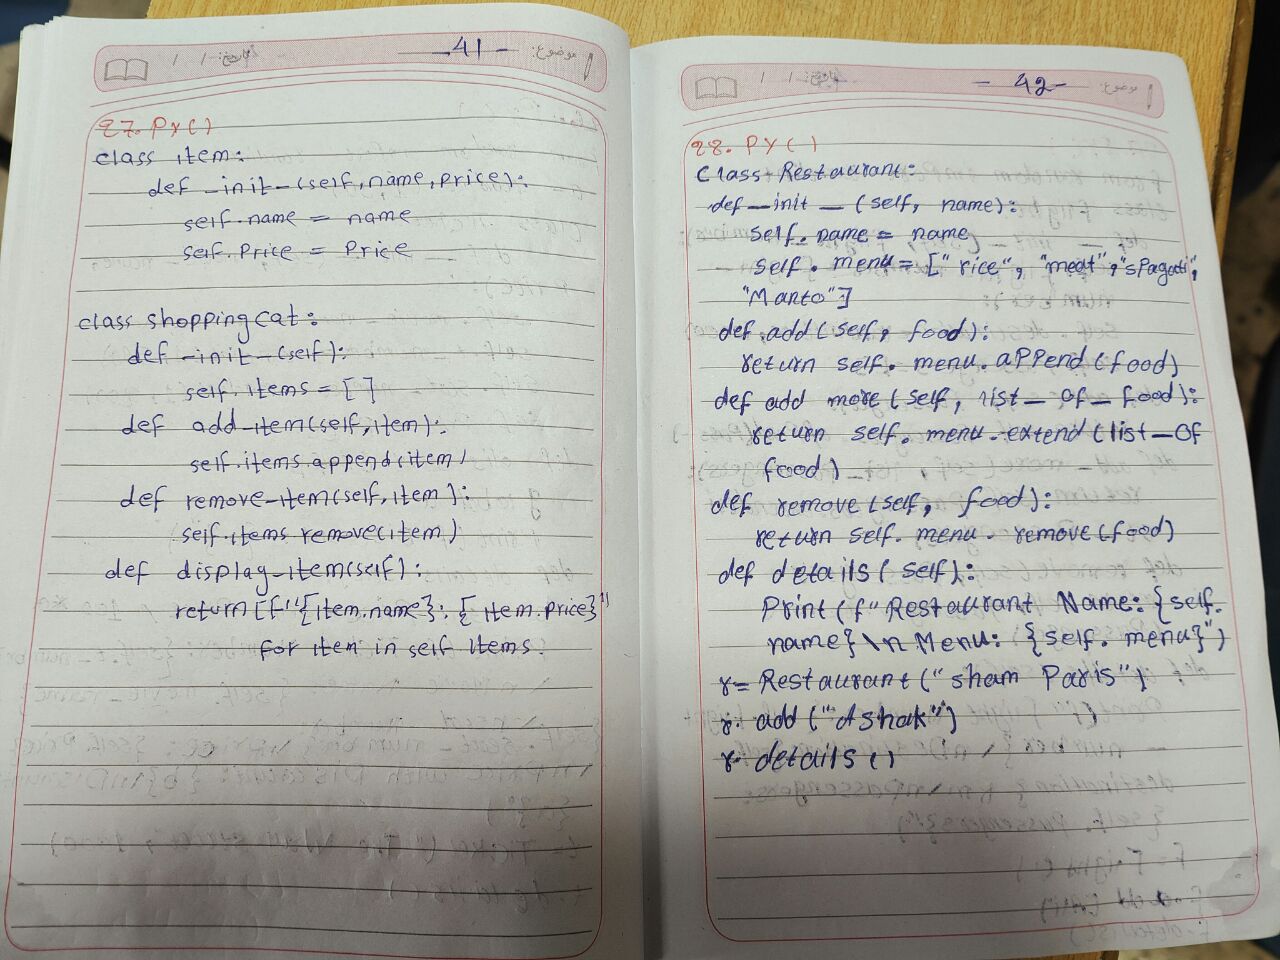 موضوع:
-41-
تاریخ: / /
27. PY()
class item:
def -init-(self, name, price):
self.name = name
self.Price = Price
class shopping cat:
def -init-(self):
self.items = []
def add-item(self, item):
self.items.append(item)
def remove-item(self, item):
self.items remove(item)
def display-item(self):
return [f"{item.name}: {item.price}"
for item in self items.
موضوع:
-42-
تاریخ: / /
28. PY()
Class Restaurant:
def -init - (self, name):
self. name = name
self. menu = ["rice", "meat", "spagati",
"Manto"]
def add(self, food):
return self. menu. append(food)
def add more (self, list - of - food):
return self. menu. extend (list - of
food)
def remove (self, food):
return self. menu. remove (food)
def details (self):
Print(f"Restaurant Name: {self.
name} \n Menu: {self. menu}")
r = Restaurant ("sham Paris")
r. add ("Ashak")
r. details ()